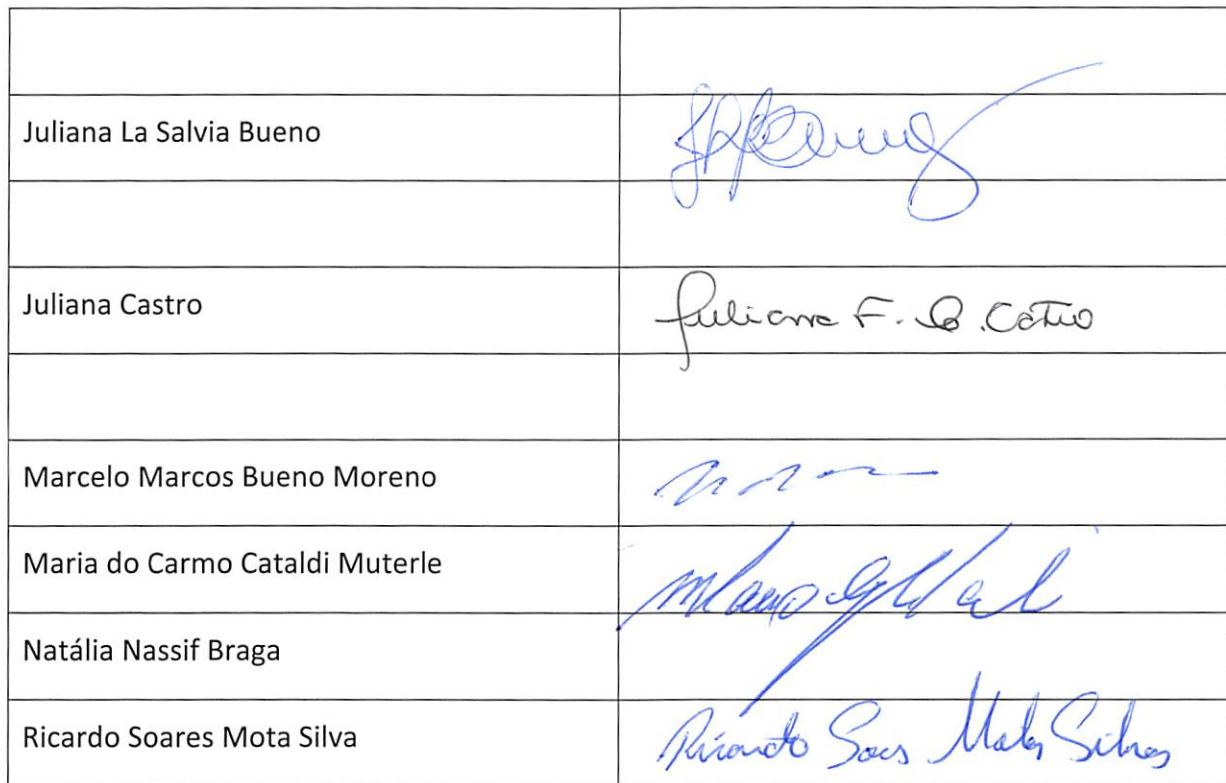 Juliana La Salvia Bueno
Juliana Castro Juliana F. de Castro
Marcelo Marcos Bueno Moreno
Maria do Carmo Cataldi Muterle
Natália Nassif Braga
Ricardo Soares Mota Silva Ricardo Soares Mota Silva